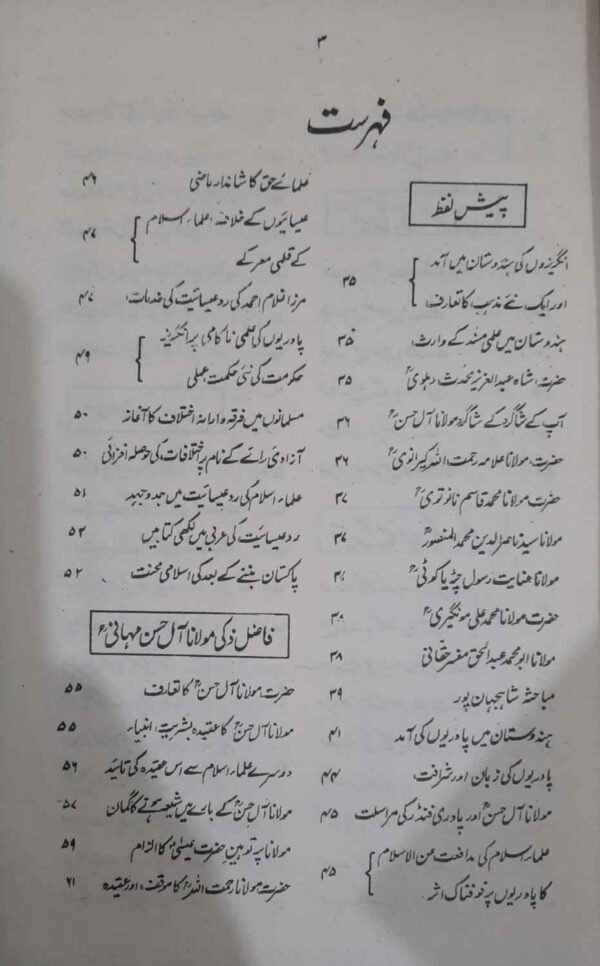 ۳
فہرست
پیش لفظ
انگریزوں کی ہندوستان میں آمد
اور ایک نئے مذہب کا تعارف ۳۵
ہندوستان میں علمی مسند کے وارث ۳۵
حضرت شاہ عبدالعزیز محدث دہلویؒ ۳۵
آپ کے شاگرد کے شاگرد مولانا آل حسنؒ ۳۶
حضرت مولانا علامہ رحمت اللہ کیرانویؒ ۳۶
حضرت مولانا محمد قاسم نانوتویؒ ۳۷
مولانا سید ناصرالدین محمد المنصورؒ ۳۷
مولانا عنایت رسول چڑیاکوٹیؒ
حضرت مولانا محمد علی مونگیریؒ ۳۸
مولانا ابو محمد عبدالحق مفسر حقانی ۳۸
مباحثہ شاہجہان پور ۳۹
ہندوستان میں پادریوں کی آمد ۴۱
پادریوں کی زبان اور شرافت ۴۴
مولانا آل حسنؒ اور پادری فنڈر کی مراسلت ۴۵
علماء اسلام کی مدافعت عن الاسلام
کا پادریوں پہ خوفناک اثر ۴۵
علمائے حق کا شاندار ماضی ۴۶
عیسائیوں کے خلاف علماء اسلام
کے قلمی معرکے ۴۷
مرزا غلام احمد کی رد عیسائیت کی خدمات ۴۷
پادریوں کی علمی ناکامی پر انگریز
حکومت کی نئی حکمت عملی ۴۹
مسلمانوں میں فرقہ وارانہ اختلاف کا آغاز ۵۰
آزادی رائے کے نام پر اختلافات کی حوصلہ افزائی ۵۰
علماء اسلام کی رد عیسائیت میں جدوجہد ۵۱
رد عیسائیت کی عربی میں لکھی کتابیں ۵۲
پاکستان بننے کے بعد کی اسلامی محنت ۵۲
فاضل ذکی مولانا آل حسن مہانیؒ
حضرت مولانا آل حسنؒ کا تعارف ۵۵
مولانا آل حسنؒ کا عقیدہ بشریت انبیاء ۵۵
دوسرے علماء اسلام سے اس عقیدہ کی تائید ۵۶
مولانا آل حسنؒ کے بارے میں شیعہ ہونے کا گمان ۵۷
مولانا پہ توہین حضرت عیسیٰؑ کا الزام ۵۹
حضرت مولانا رحمت اللہؒ کا موقف اور عقیدہ ۶۱